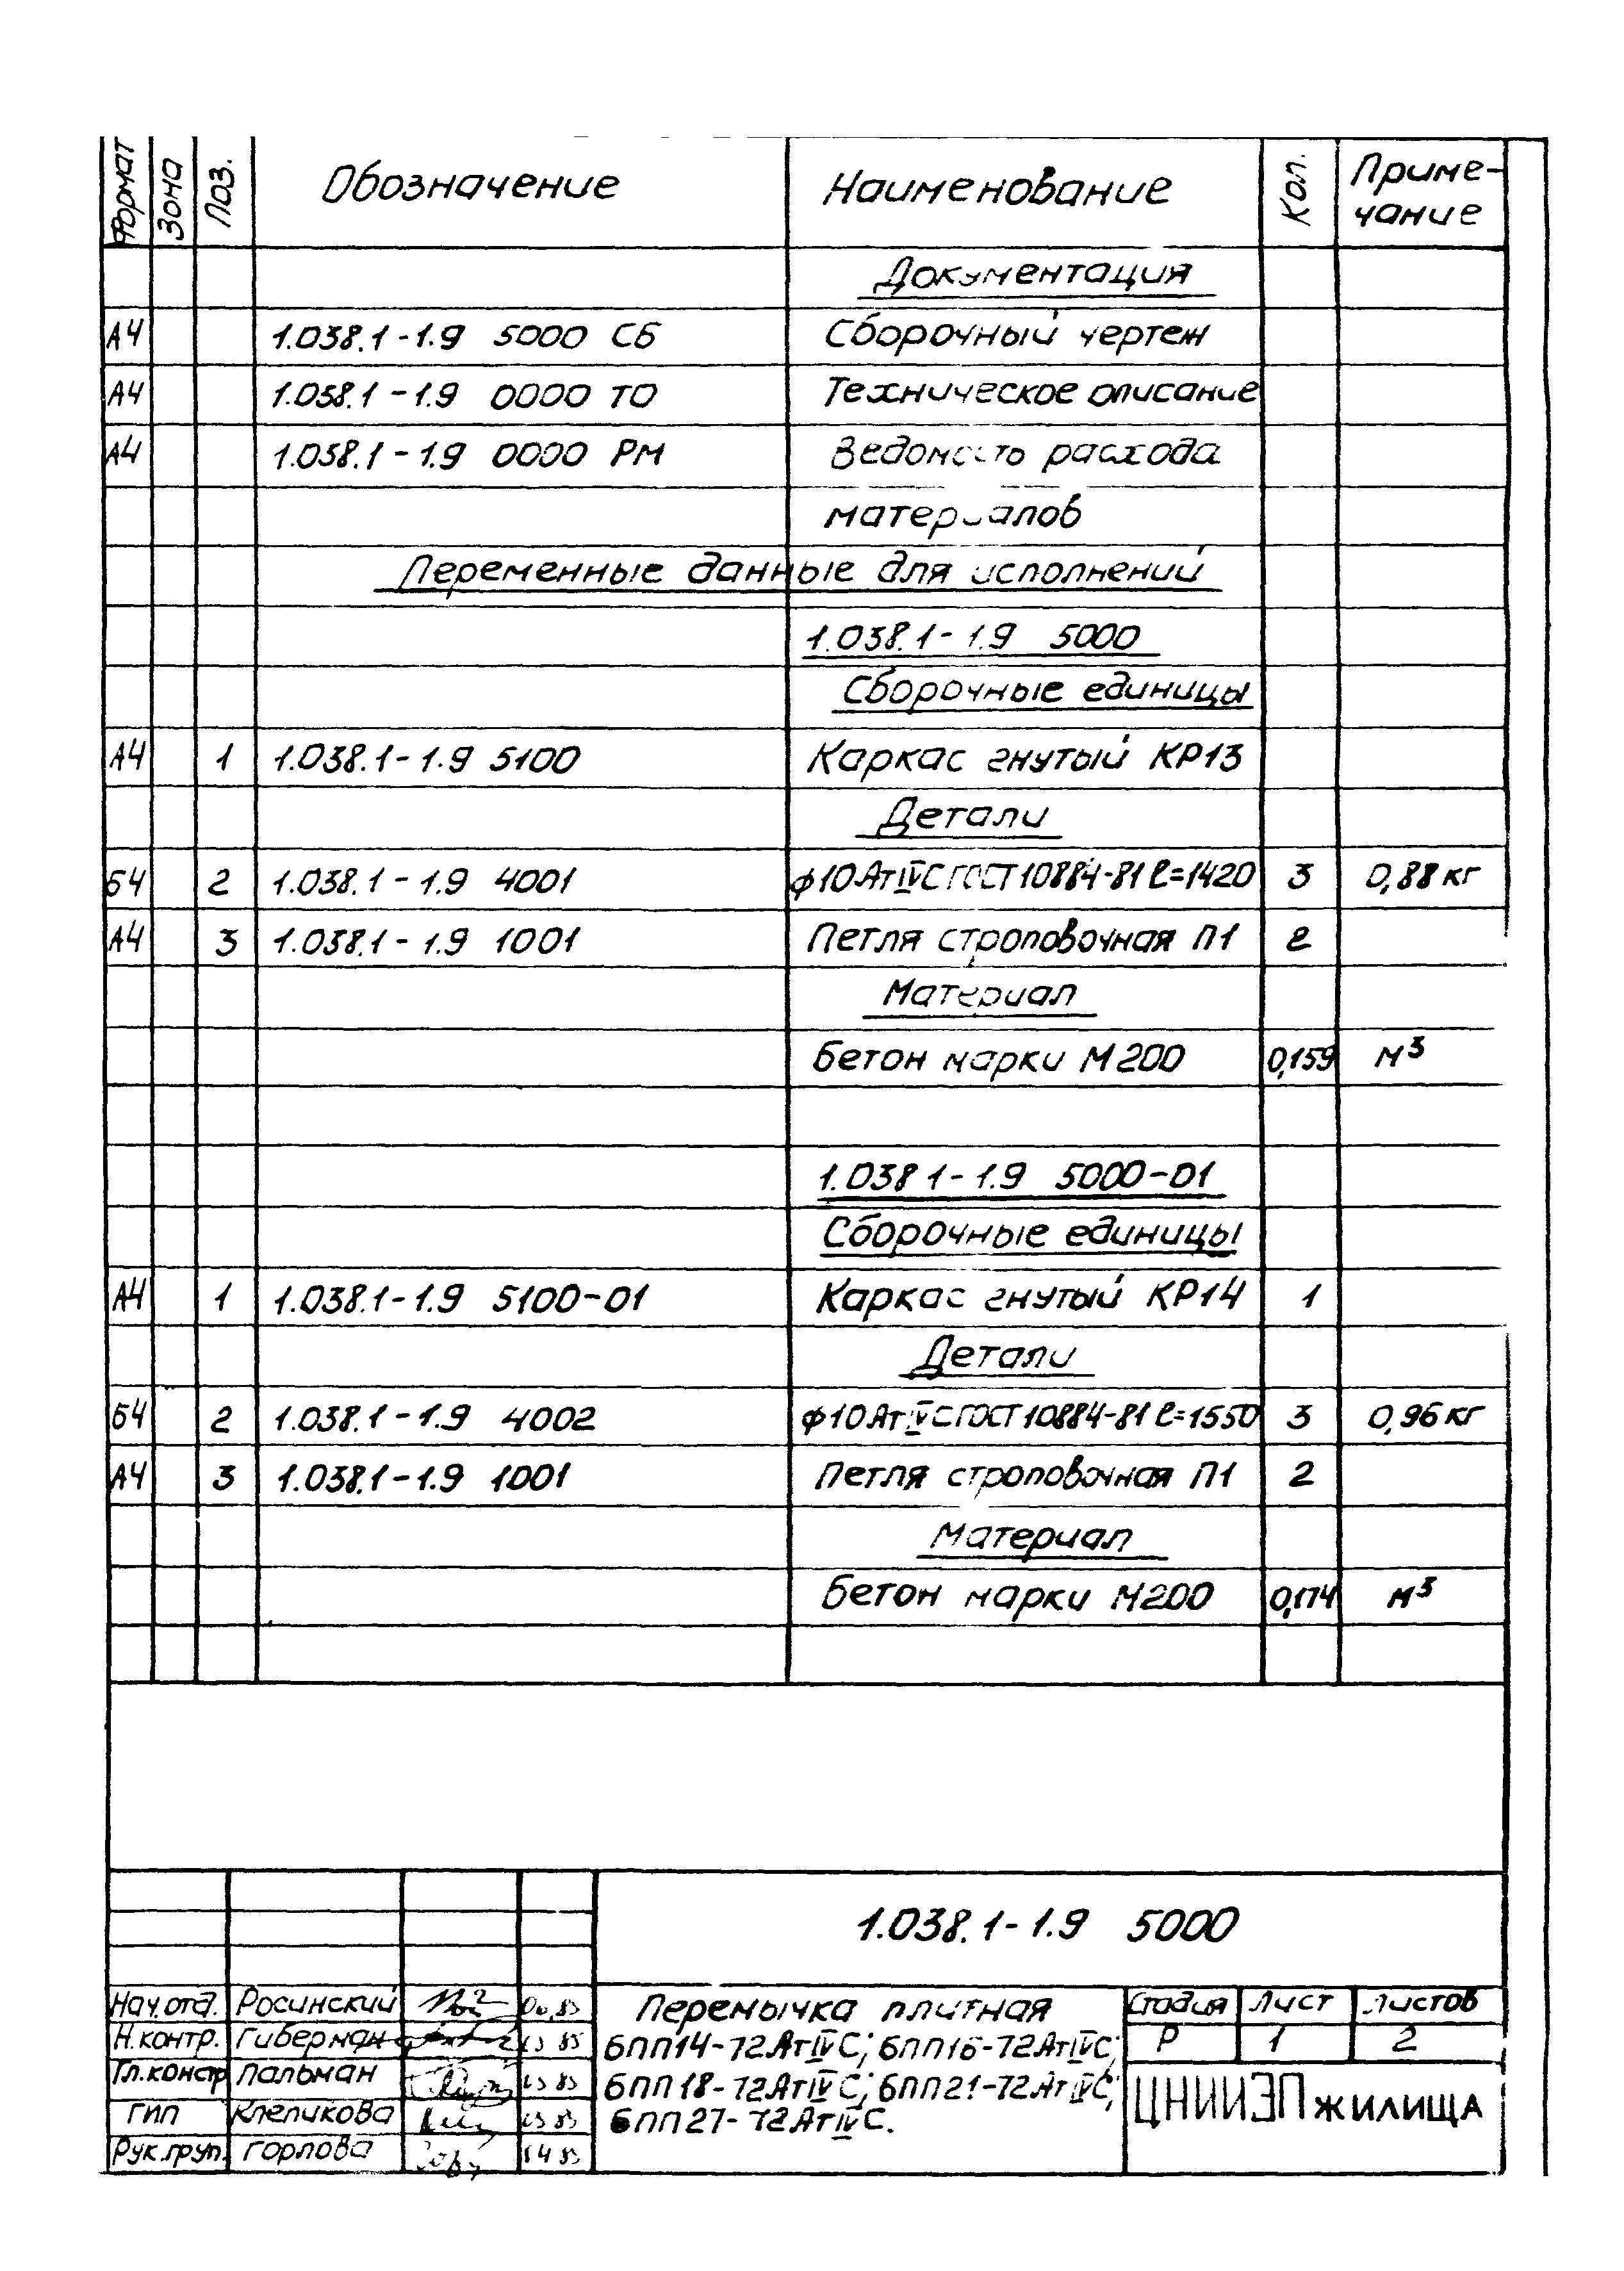 Формат Зона Поз. Обозначение Наименование Кол. Приме-
чание
Документация
А4 1.038.1-1.9 5000 СБ Сборочный чертеж
А4 1.038.1-1.9 0000 ТО Техническое описание
А4 1.038.1-1.9 0000 РМ Ведомость расхода
материалов
Переменные данные для исполнений
1.038.1-1.9 5000
Сборочные единицы
А4 1 1.038.1-1.9 5100 Каркас гнутый КР13
Детали
Б4 2 1.038.1-1.9 4001 ф10АтIVС ГОСТ 10884-81 ℓ=1420 3 0,88 кг
А4 3 1.038.1-1.9 1001 Петля строповочная П1 2
Материал
Бетон марки М200 0,159 м³
1.038 1-1.9 5000-01
Сборочные единицы
А4 1 1.038.1-1.9 5100-01 Каркас гнутый КР14 1
Детали
Б4 2 1.038.1-1.9 4002 ф10АтIVС ГОСТ 10884-81 ℓ=1550 3 0,96 кг
А4 3 1.038.1-1.9 1001 Петля строповочная П1 2
Материал
Бетон марки М200 0,174 м³
1.038.1-1.9 5000
Нач.отд. Росинский
Н.контр. Гиберман
Гл.констр Пальман
ГИП Клепикова
Рук.груп. Горлова
Перемычка плитная
6ПП14-72АтIVС; 6ПП16-72АтIVС;
6ПП18-72АтIVС; 6ПП21-72АтIVС;
6ПП27-72АтIVС.
Стадия Лист Листов
Р 1 2
ЦНИИЭП жилища